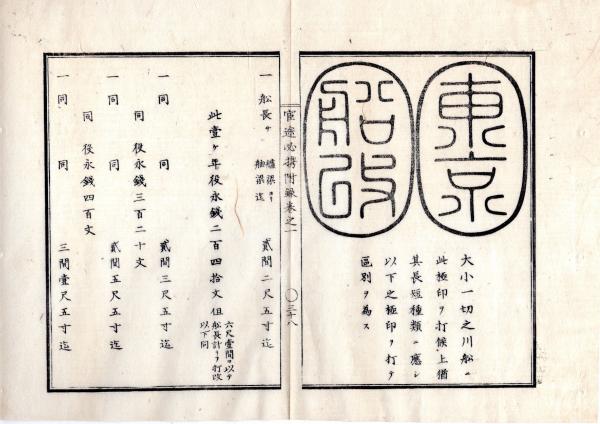 東京
船改
大小一切之川船ニ
此極印ヲ打候上猶
其長短種類ニ應シ
以下之極印ヲ打テ
區別ヲ為ス
官途必携附録巻之一
〇三十八
一 舩長サ 艫梁ヨリ舳梁迄 貳間二尺五寸迄
此壹ケ年役永錢二百四拾文但 六尺壹間ヲ以テ舩長計リヲ打改以下同
一 同 同 貳間三尺五寸迄
同 役永錢三百二十文
一 同 同 貳間五尺五寸迄
同 役永錢四百文
一 同 同 三間壹尺五寸迄